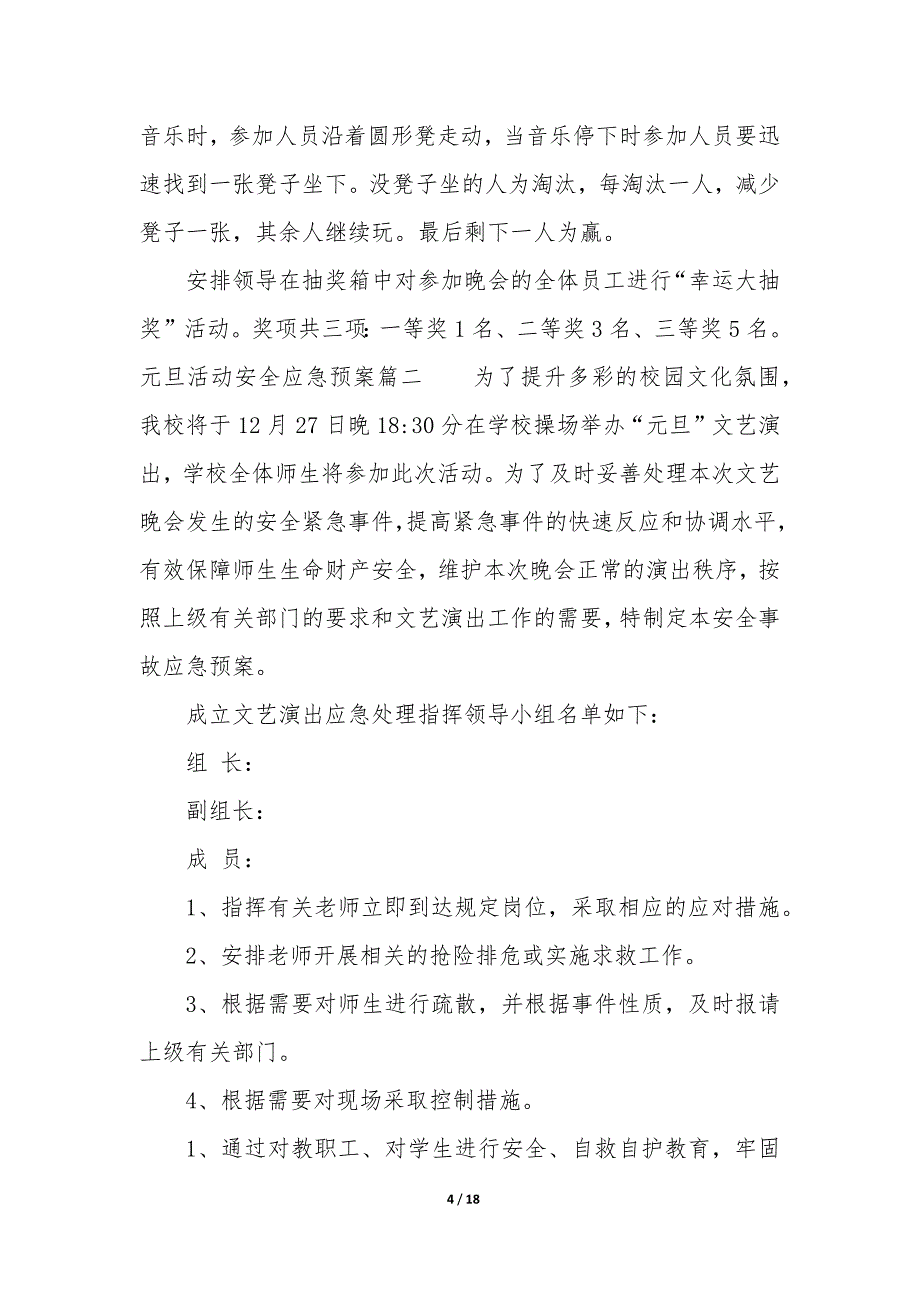 音乐时，参加人员沿着圆形凳走动，当音乐停下时参加人员要迅
速找到一张凳子坐下。没凳子坐的人为淘汰，每淘汰一人，减少
凳子一张，其余人继续玩。最后剩下一人为赢。
安排领导在抽奖箱中对参加晚会的全体员工进行“幸运大抽
奖”活动。奖项共三项：一等奖 1 名、二等奖 3 名、三等奖 5 名。
元旦活动安全应急预案篇二 为了提升多彩的校园文化氛围，
我校将于 12 月 27 日晚 18:30 分在学校操场举办“元旦”文艺演
出，学校全体师生将参加此次活动。为了及时妥善处理本次文艺
晚会发生的安全紧急事件，提高紧急事件的快速反应和协调水平，
有效保障师生生命财产安全，维护本次晚会正常的演出秩序，按
照上级有关部门的要求和文艺演出工作的需要，特制定本安全事
故应急预案。
成立文艺演出应急处理指挥领导小组名单如下：
组 长：
副组长：
成 员：
1、指挥有关老师立即到达规定岗位，采取相应的应对措施。
2、安排老师开展相关的抢险排危或实施求救工作。
3、根据需要对师生进行疏散，并根据事件性质，及时报请
上级有关部门。
4、根据需要对现场采取控制措施。
1、通过对教职工、对学生进行安全、自救自护教育，牢固
4 / 18